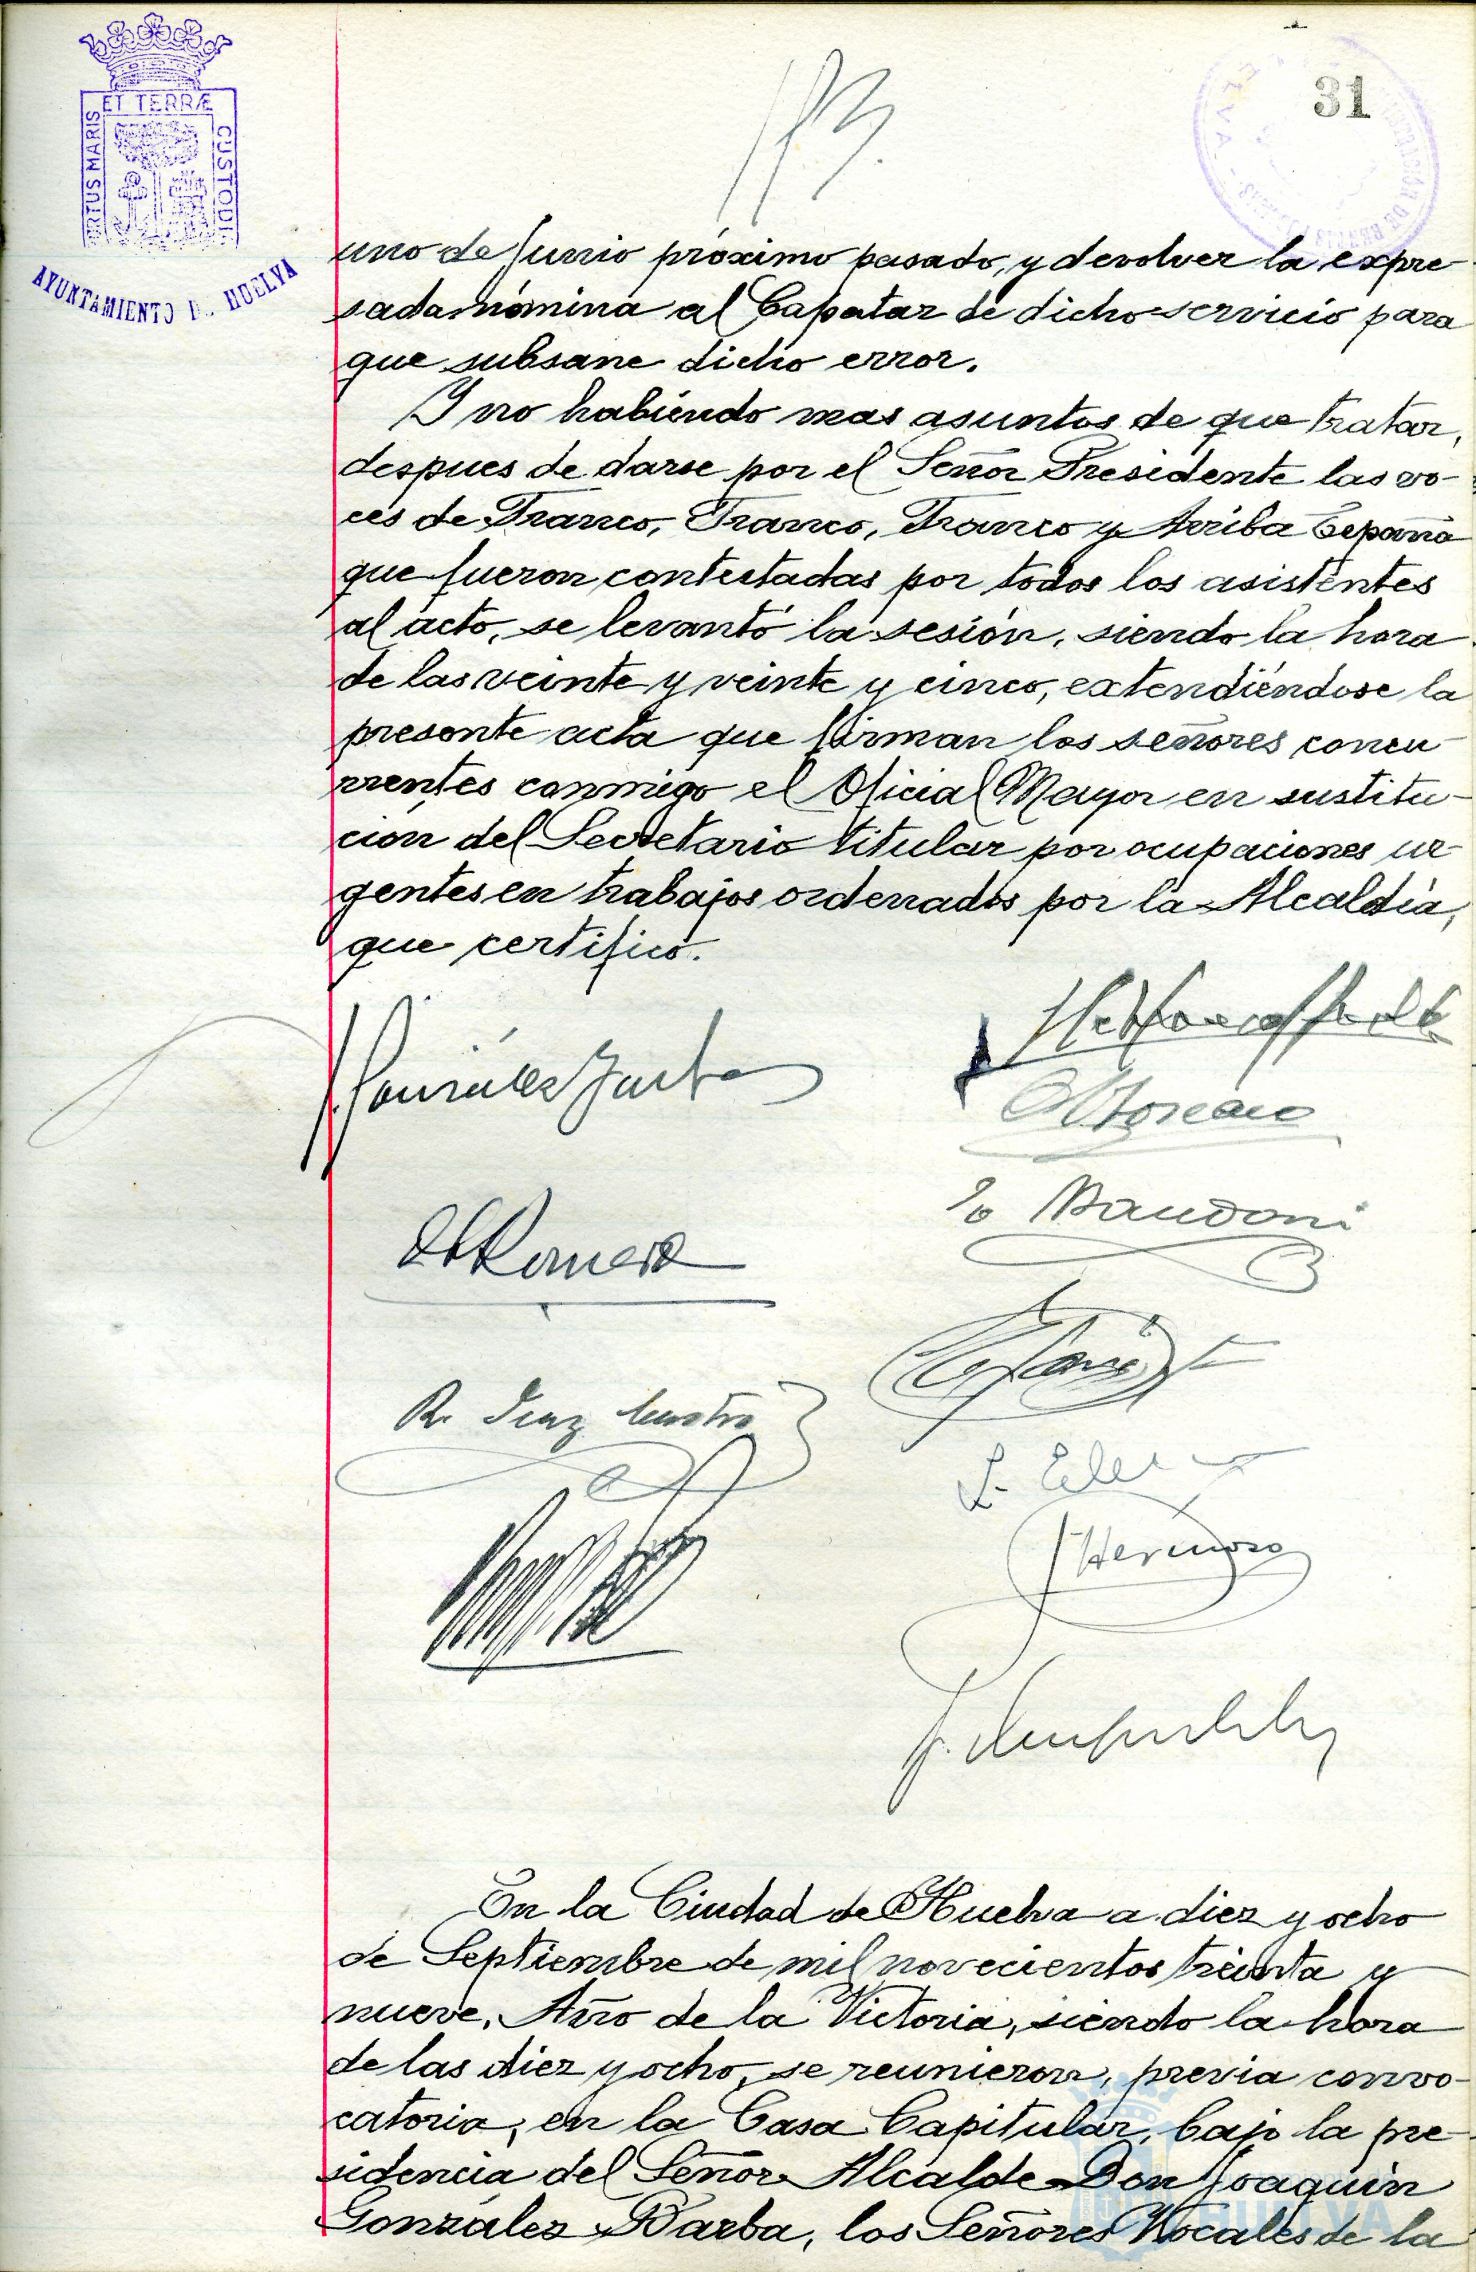 ET TERRÆ
CUSTODI
RTUS MARIS
AYUNTAMIENTO D. HUELVA
31
uno de Junio próximo pasado, y devolver la expre-
sada nómina al Capataz de dicho servicio para
que subsane dicho error.
Y no habiendo mas asuntos de que tratar,
despues de darse por el Señor Presidente las vo-
ces de Franco, Franco, Franco y Arriba España
que fueron contestadas por todos los asistentes
al acto, se levantó la sesión, siendo la hora
de las veinte y veinte y cinco, extendiéndose la
presente acta que firman los señores concu-
rrentes conmigo el Oficial Mayor en sustitu-
ción del Secretario titular por ocupaciones ur-
gentes en trabajos ordenados por la Alcaldía,
que certifico.
J. González Barba
Romero
Mandoni
R. Diaz
J. Hermoso
En la Ciudad de Huelva a diez y ocho
de Septiembre de mil novecientos treinta y
nueve, Año de la Victoria, siendo la hora
de las diez y ocho, se reunieron, previa convo-
catoria, en la Casa Capitular, bajo la pre-
sidencia del Señor Alcalde Don Joaquín
González Barba, los Señores Vocales de la
HUELVA